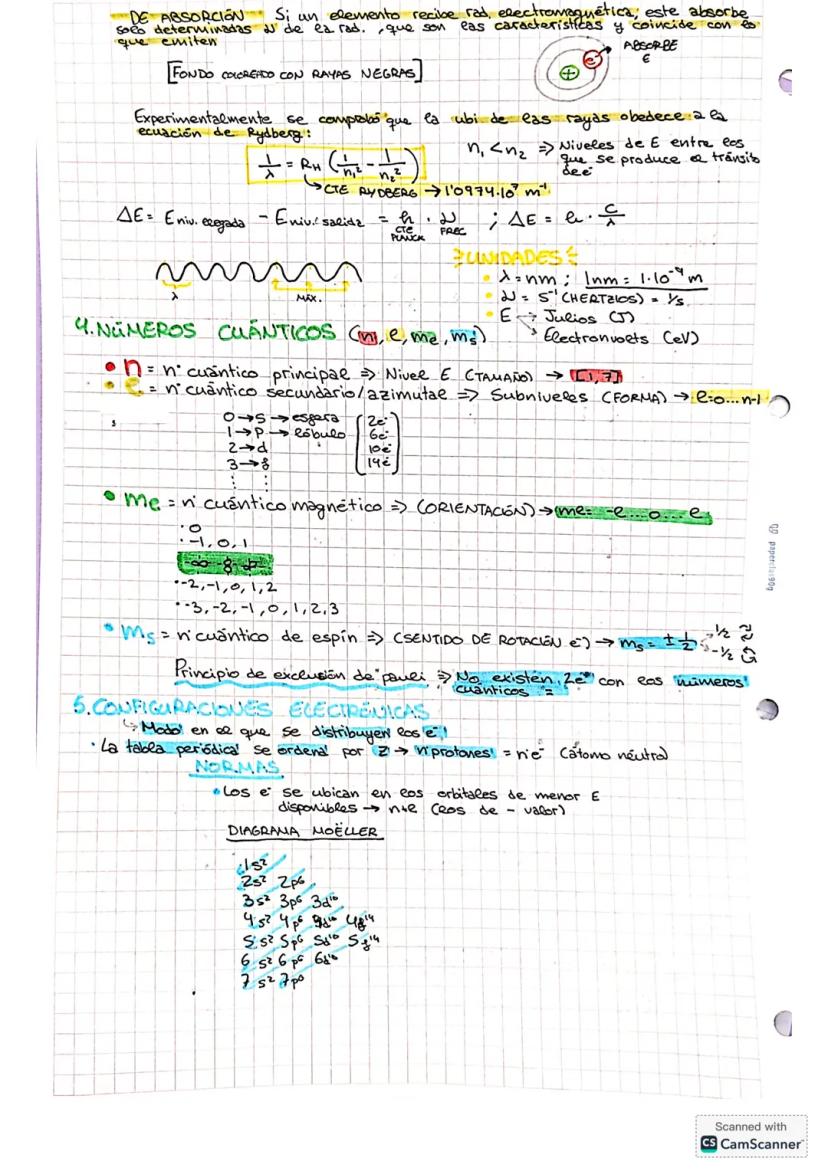 DE ABSORCIÓN Si un elemento recibe rad. electromagnética, este absorbe
solo determinadas ν de la rad., que son las características y coincide con los
que emiten
ABSORBE
E
e⁻
+
[FONDO COLOREADO CON RAYAS NEGRAS]
Experimentalmente se comprobó que la ubi de las rayas obedece a la
ecuación de Rydberg:
1/λ = RH (1/n₁² - 1/n₂²)
n₁ < n₂ => Niveles de E entre los
que se produce el tránsito
de e⁻
↳ CTE RYDBERG → 1'0974·10⁷ m⁻¹
ΔE = E niv. llegada - E niv. salida = h · ν ; ΔE = h · c/λ
CTE PLANCK FREC
UNIDADES
λ = nm ; 1nm = 1·10⁻⁹ m
ν = s⁻¹ (HERTZIOS) = 1/s
E → Julios (J)
↘ Electronvolts (eV)
λ
MÁX.
4. NÚMEROS CUÁNTICOS (n, l, ml, ms)
• n = nº cuántico principal => Nivel E (TAMAÑO) → [1,7]
• l = nº cuántico secundario/azimutal => Subniveles (FORMA) → l=0...n-1
0 → s → esfera 2e⁻
1 → p → lóbulo 6e⁻
2 → d 10e⁻
3 → f 14e⁻
⋮ ⋮
• ml = nº cuántico magnético => (ORIENTACIÓN) → ml = -l...0...l
· 0
· -1, 0, 1
· -2, -1, 0, 1, 2
· -3, -2, -1, 0, 1, 2, 3
• ms = nº cuántico de espín => (SENTIDO DE ROTACIÓN e⁻) → ms = ± 1/2 1/2
-1/2
Principio de exclusión de pauli => No existen 2e⁻ con los números
cuánticos =
5. CONFIGURACIONES ELECTRÓNICAS
↳ Modo en el que se distribuyen los e⁻
• La tabla periódica se ordena por Z → nº protones = nº e⁻ (átomo neutro)
NORMAS
• Los e⁻ se ubican en los orbitales de menor E
disponibles → n+l (los de - valor)
DIAGRAMA MOËLLER
1s²
2s² 2p⁶
3s² 3p⁶ 3d¹⁰
4s² 4p⁶ 4d¹⁰ 4f¹⁴
5s² 5p⁶ 5d¹⁰ 5f¹⁴
6s² 6p⁶ 6d¹⁰
7s² 7p⁶
Scanned with
CS CamScanner